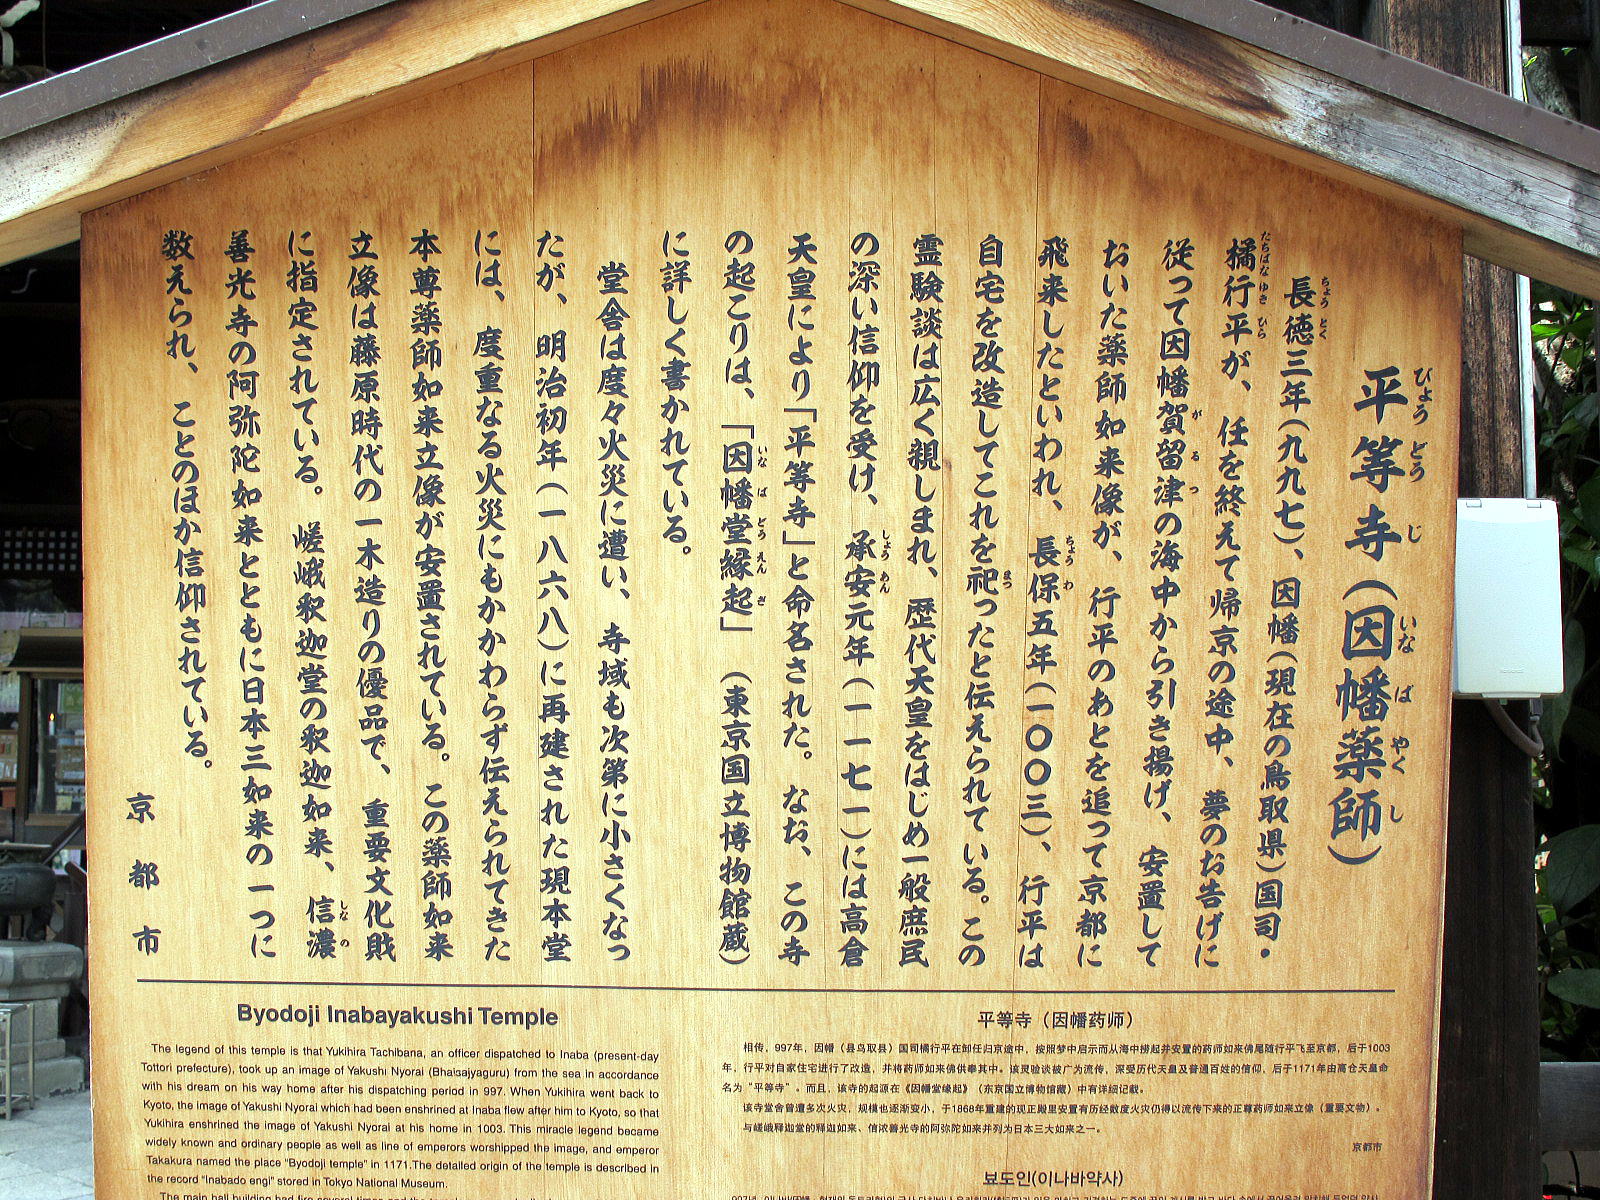 平等寺（因幡薬師）
びょうどうじ いなばやくし
長徳三年（九九七）、因幡（現在の鳥取県）国司・
ちょうとく
橘行平が、任を終えて帰京の途中、夢のお告げに
たちばなゆきひら
従って因幡賀留津の海中から引き揚げ、安置して
がるつ
おいた薬師如来像が、行平のあとを追って京都に
飛来したといわれ、長保五年（一〇〇三）、行平は
ちょうわ
自宅を改造してこれを祀ったと伝えられている。この
まつ
霊験談は広く親しまれ、歴代天皇をはじめ一般庶民
の深い信仰を受け、承安元年（一一七一）には高倉
しょうあん
天皇により「平等寺」と命名された。なお、この寺
の起こりは、「因幡堂縁起」（東京国立博物館蔵）
いなばどうえんぎ
に詳しく書かれている。
堂舎は度々火災に遭い、寺域も次第に小さくなっ
たが、明治初年（一八六八）に再建された現本堂
には、度重なる火災にもかかわらず伝えられてきた
本尊薬師如来立像が安置されている。この薬師如来
立像は藤原時代の一木造りの優品で、重要文化財
に指定されている。嵯峨釈迦堂の釈迦如来、信濃
しなの
善光寺の阿弥陀如来とともに日本三如来の一つに
数えられ、ことのほか信仰されている。
京都市
Byodoji Inabayakushi Temple
The legend of this temple is that Yukihira Tachibana, an officer dispatched to Inaba (present-day
Tottori prefecture), took up an image of Yakushi Nyorai (Bhaisajyaguru) from the sea in accordance
with his dream on his way home after his dispatching period in 997. When Yukihira went back to
Kyoto, the image of Yakushi Nyorai which had been enshrined at Inaba flew after him to Kyoto, so that
Yukihira enshrined the image of Yakushi Nyorai at his home in 1003. This miracle legend became
widely known and ordinary people as well as line of emperors worshipped the image, and emperor
Takakura named the place "Byodoji temple" in 1171.The detailed origin of the temple is described in
the record "Inabado engi" stored in Tokyo National Museum.
The main hall building had fire several times and the
平等寺（因幡药师）
相传，997年，因幡（县鸟取县）国司橘行平在卸任归京途中，按照梦中启示而从海中捞起并安置的药师如来佛尾随行平飞至京都，后于1003
年，行平对自家住宅进行了改造，并将药师如来佛供奉其中。该灵验谈被广为流传，深受历代天皇及普通百姓的信仰，后于1171年由高仓天皇命
名为“平等寺”。而且，该寺的起源在《因幡堂缘起》（东京国立博物馆藏）中有详细记载。
该寺堂舍曾遭多次火灾，规模也逐渐变小，于1868年重建的现正殿里安置有历经数度火灾仍得以流传下来的正尊药师如来立像（重要文物）。
与嵯峨释迦堂的释迦如来、信浓善光寺的阿弥陀如来并列为日本三大如来之一。
京都市
뵤도인(이나바약사)